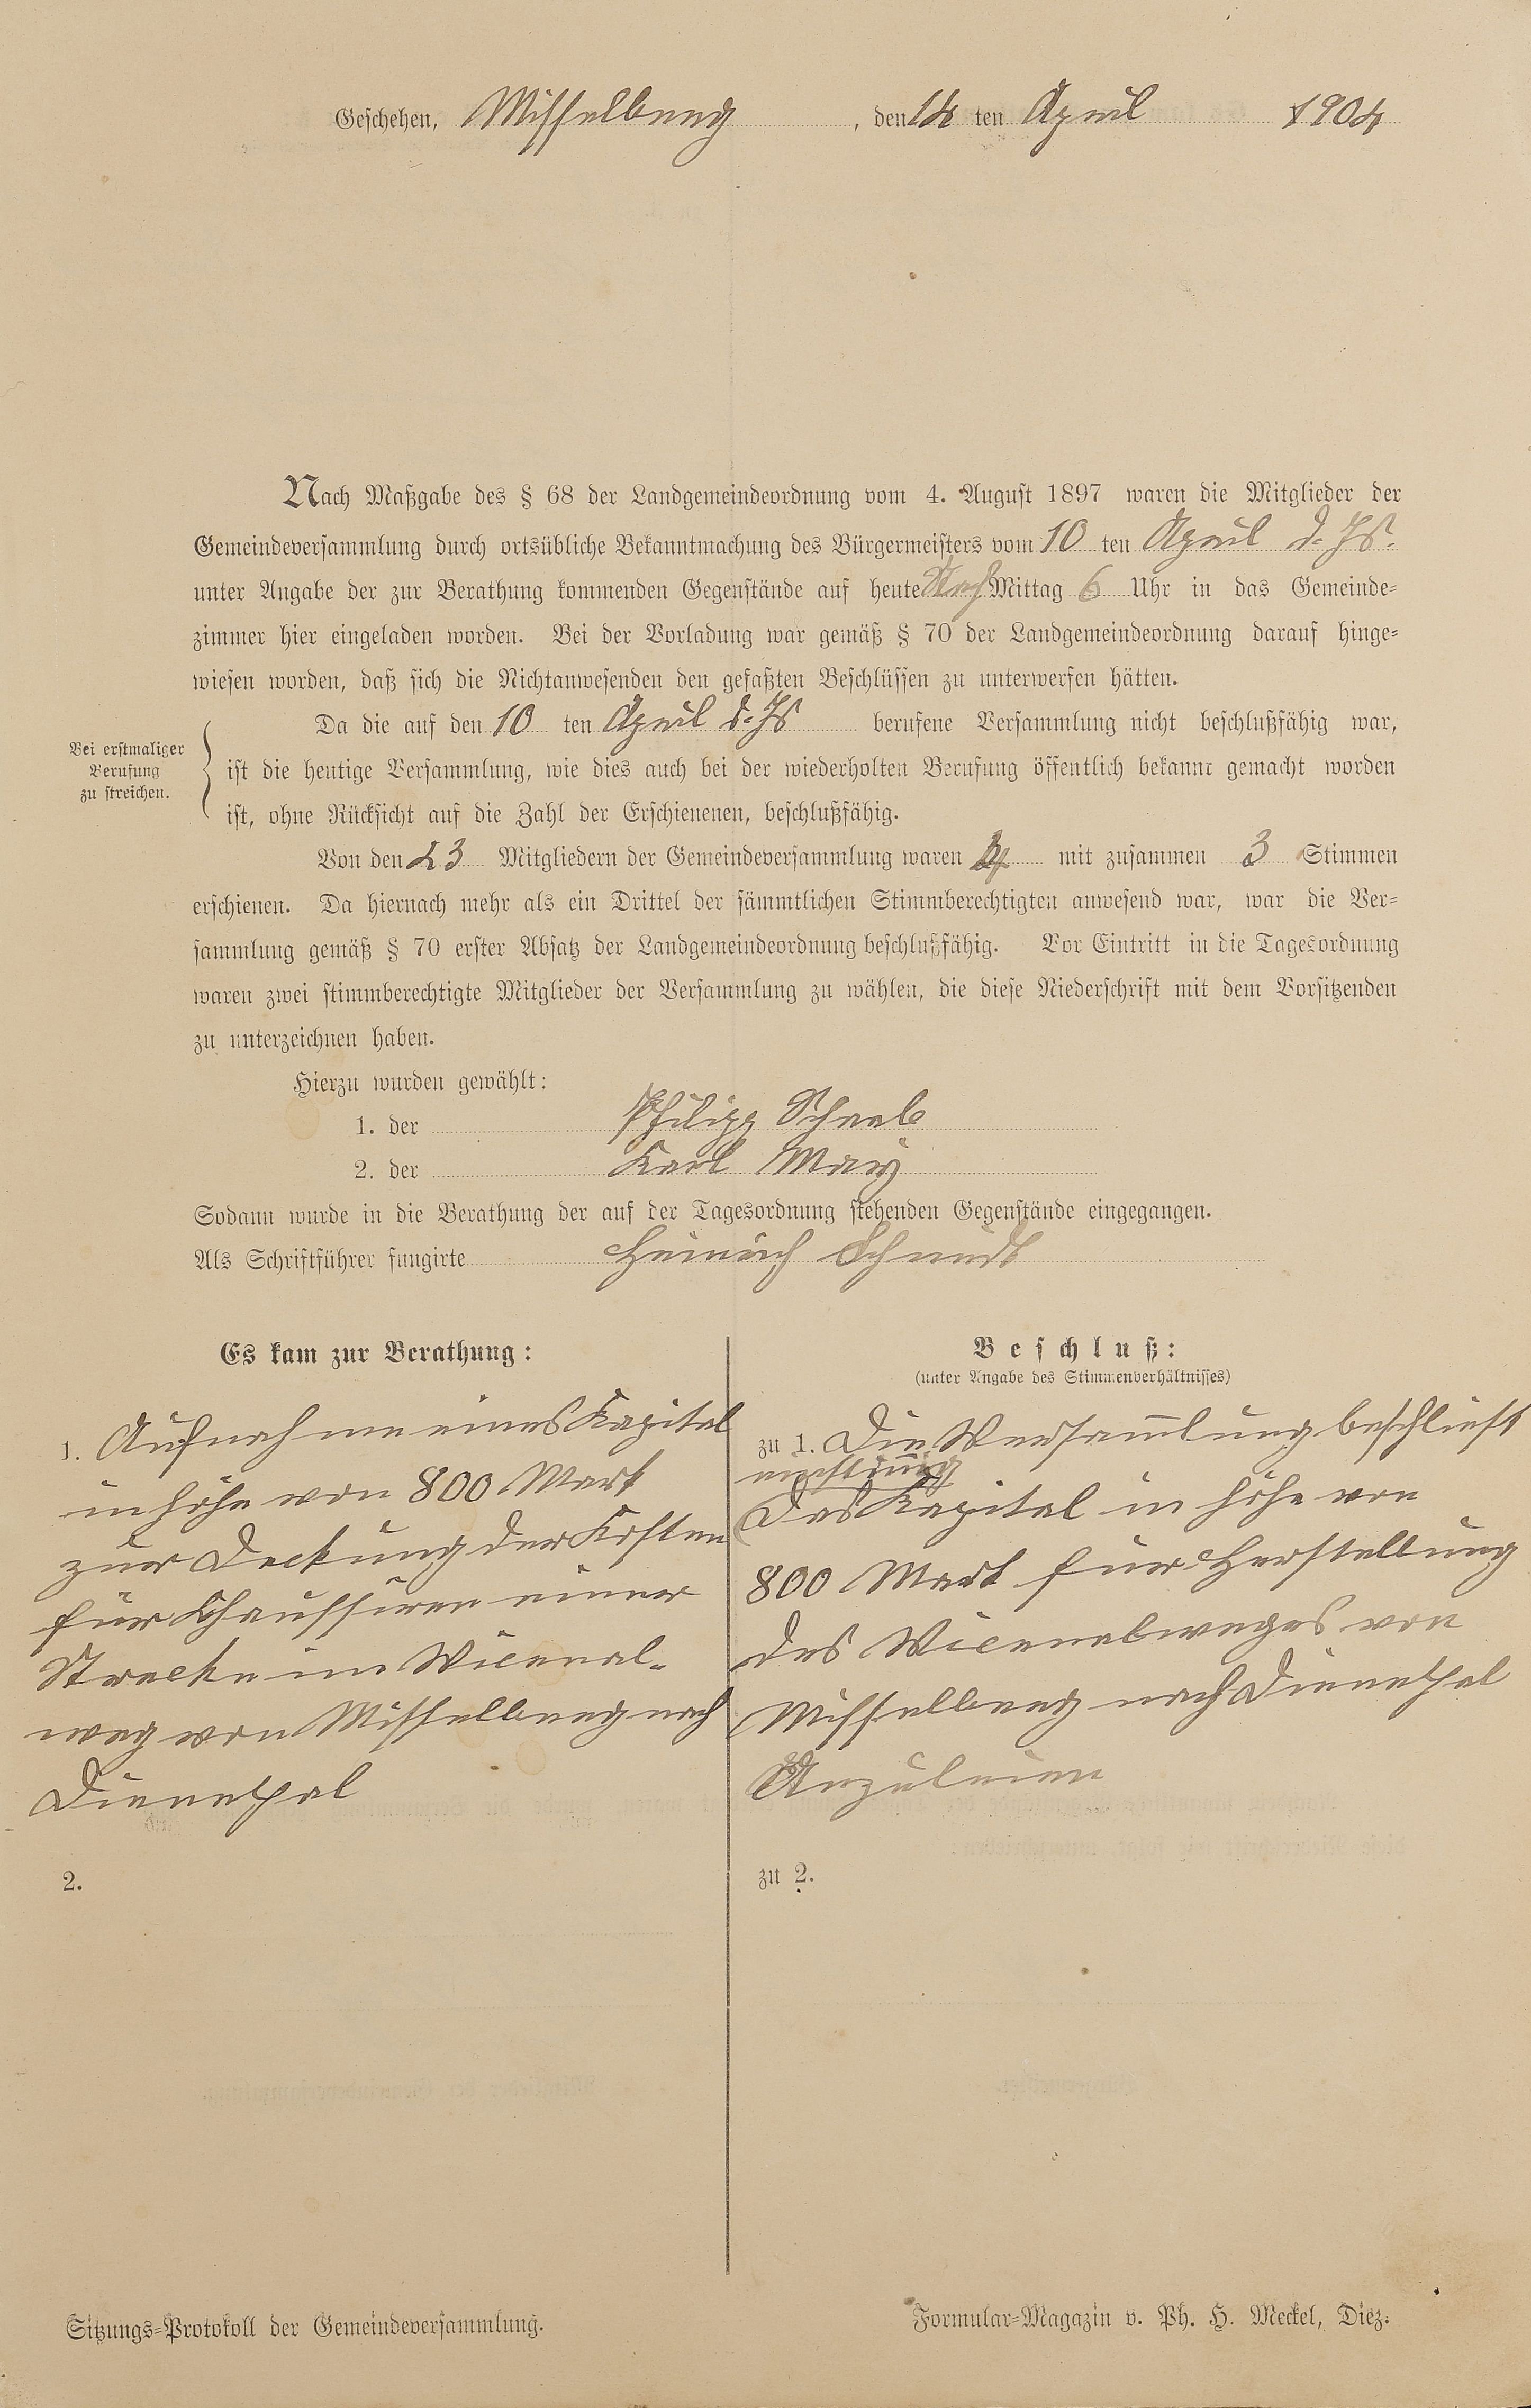 Geschehen, Misselberg, den 14 ten April 1904
Nach Maßgabe des § 68 der Landgemeindeordnung vom 4. August 1897 waren die Mitglieder der
Gemeindeversammlung durch ortsübliche Bekanntmachung des Bürgermeisters vom 10 ten April d. Js.
unter Angabe der zur Berathung kommenden Gegenstände auf heute Nach Mittag 6 Uhr in das Gemeinde=
zimmer hier eingeladen worden. Bei der Vorladung war gemäß § 70 der Landgemeindeordnung darauf hinge=
wiesen worden, daß sich die Nichtanwesenden den gefaßten Beschlüssen zu unterwerfen hätten.
Bei erstmaliger
Berufung
zu streichen.
Da die auf den 10 ten April d. Js berufene Versammlung nicht beschlußfähig war,
ist die heutige Versammlung, wie dies auch bei der wiederholten Berufung öffentlich bekannt gemacht worden
ist, ohne Rücksicht auf die Zahl der Erschienenen, beschlußfähig.
Von den 23 Mitgliedern der Gemeindeversammlung waren mit zusammen 3 Stimmen
erschienen. Da hiernach mehr als ein Drittel der sämmtlichen Stimmberechtigten anwesend war, war die Ver=
sammlung gemäß § 70 erster Absatz der Landgemeindeordnung beschlußfähig. Vor Eintritt in die Tagesordnung
waren zwei stimmberechtigte Mitglieder der Versammlung zu wählen, die diese Niederschrift mit dem Vorsitzenden
zu unterzeichnen haben.
Hierzu wurden gewählt:
1. der Philipp Schaab
2. der Karl May
Sodann wurde in die Berathung der auf der Tagesordnung stehenden Gegenstände eingegangen.
Als Schriftführer fungirte Heinrich Schmidt
Es kam zur Berathung:
1. Aufnahme eines Kapital
in Höhe von 800 Mark
zur Deckung der Kosten
für Chaussiren einer
Strecke im Wiesenal-
weg von Misselberg nach
Dienethal
2.
Beschluß:
(unter Angabe des Stimmenverhältnisses)
zu 1. Die Versammlung beschliest
einstimmig
das Kapital in Höhe von
800 Mark für Herstellung
des von
Misselberg nach Dienethal
Anzuleien
zu 2.
Sitzungs=Protokoll der Gemeindeversammlung.
Formular=Magazin v. Ph. H. Meckel, Diez.